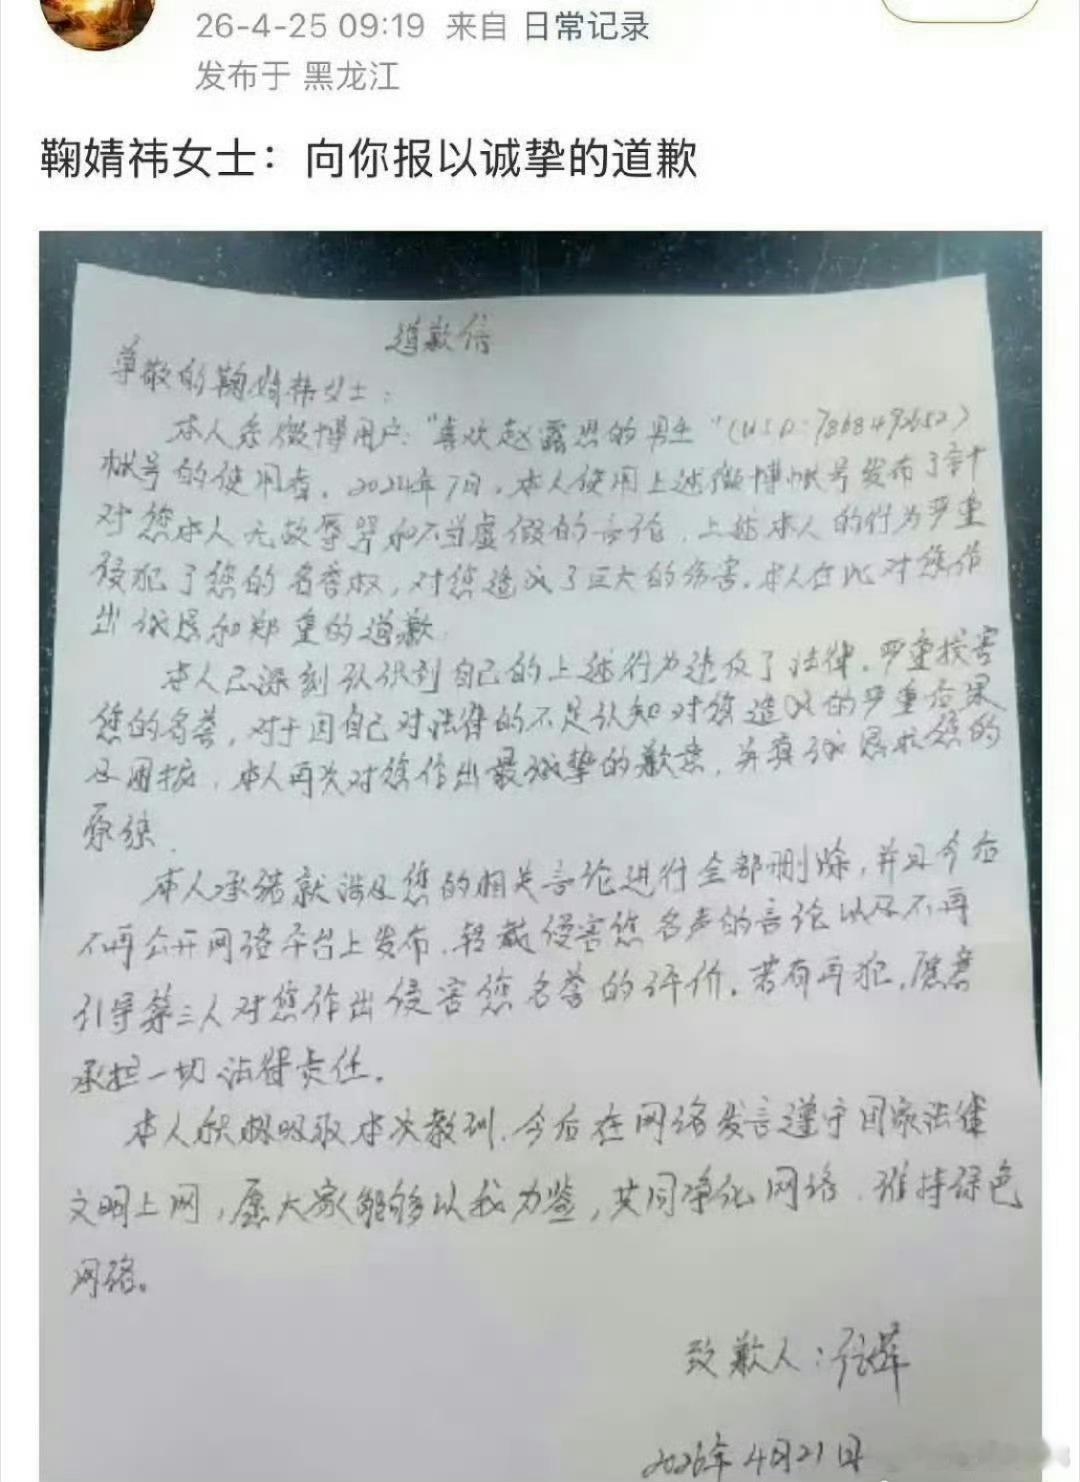 26-4-25 09:19 来自 日常记录
发布于 黑龙江
鞠婧祎女士：向你报以诚挚的道歉
道歉信
尊敬的鞠婧祎女士：
本人系微博用户："喜欢赵露思的男生"(UID:7868492652)
帐号的使用者。2024年7月，本人使用上述微博帐号发布了针
对您本人无故辱骂和不当虚假的言论，上述本人的行为严重
侵犯了您的名誉权，对您造成了巨大的伤害。本人在此对您作
出诚恳和郑重的道歉
本人已深刻认识到自己的上述行为违反了法律，严重损害
您的名誉，对于因自己对法律的不足认知对您造成的严重后果
及困扰，本人再次对您作出最诚挚的歉意，并真诚恳求您的
原谅.
本人承诺就涉及您的相关言论进行全部删除，并且今后
不再公开网络平台上发布、转载侵害您名声的言论以及不再
引导第三人对您作出侵害您名誉的评价。若有再犯，愿意
承担一切法律责任。
本人积极吸取本次教训，今后在网络发言遵守国家法律
文明上网，愿大家能够以我为鉴，共同净化网络，维持绿色
网络。
致歉人：
2026年4月21日